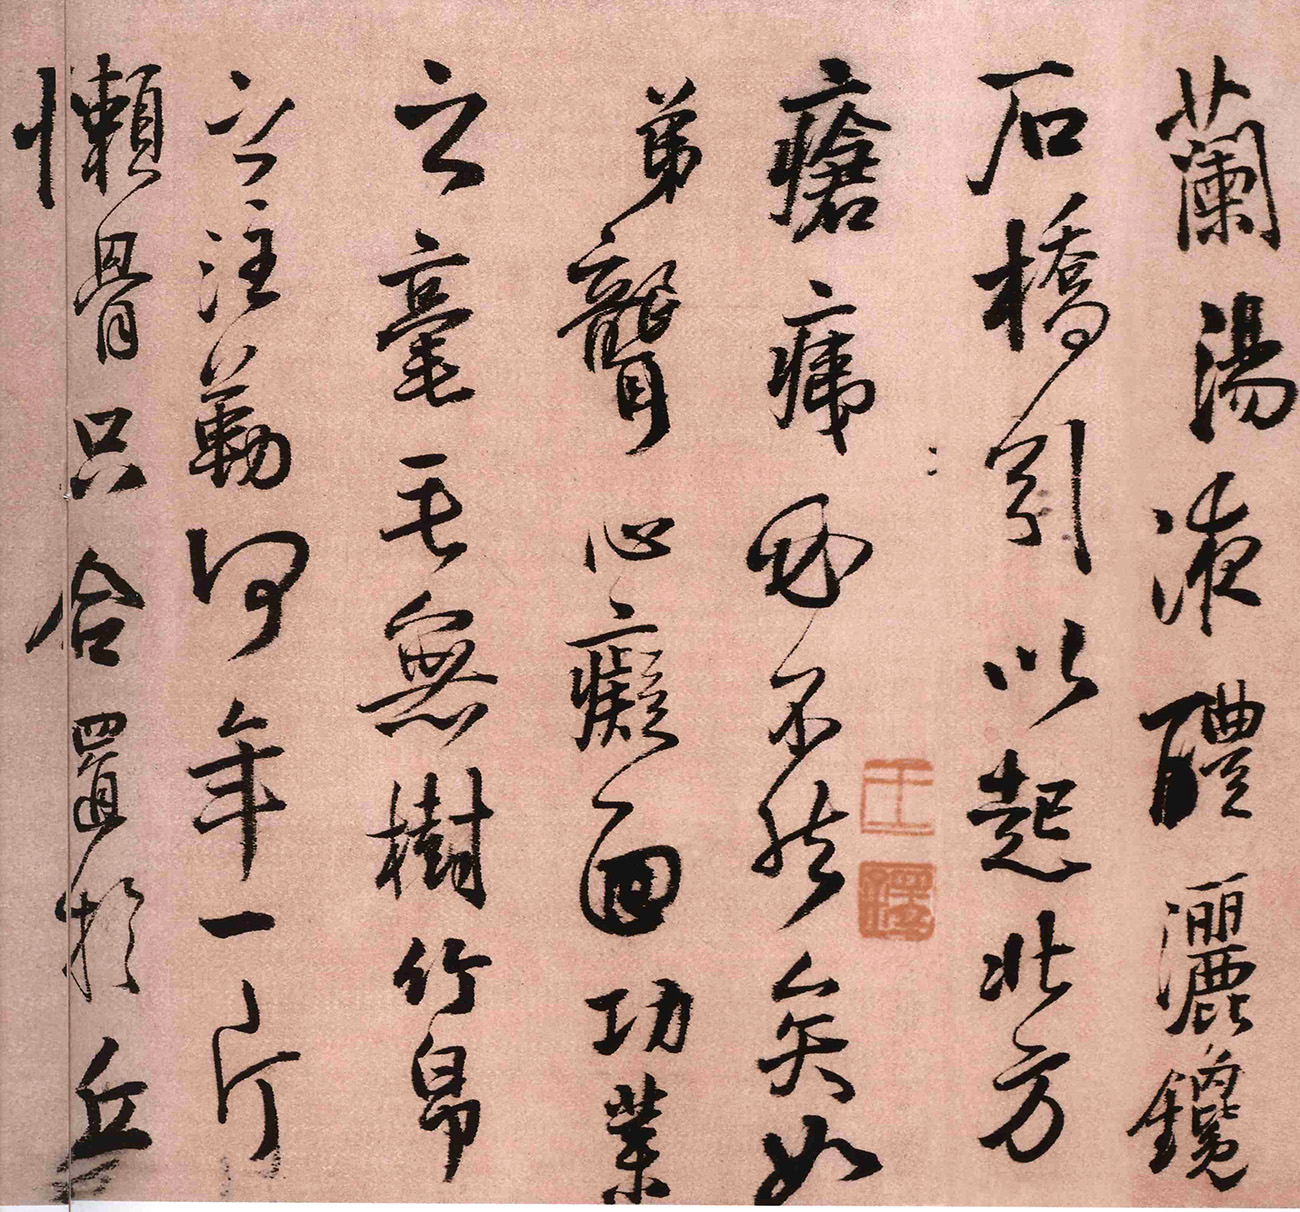 蘭湯液醴灑鑱
石橋引以起北方
瘡痍不能矣如
弟聾心癡面功業
之毫毛無樹竹帛
注勒何年一片
懶骨只合置於丘
王鐸